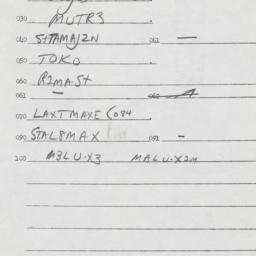 030 MUTR3
040 STTAMAJ2N 041 —
050 TOKO
060 RIMASt
061 —
070 LAXTMAXE C084
090 STAL8MAX 091 -
100 M3LU·X3 MALU·X2M